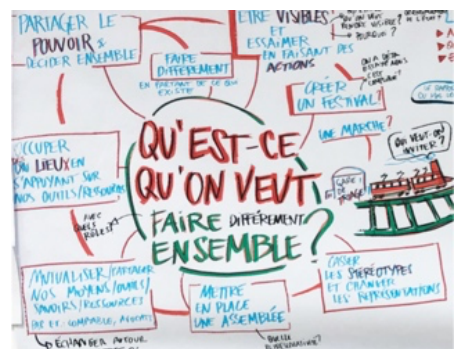 PARTAGER LE
POUVOIR &
DÉCIDER ENSEMBLE
FAIRE
DIFFÉREMMENT
EN PARTANT DE CE QUI
EXISTE
ETRE VISIBLES
ET
ESSAIMER
EN FAISANT DES
ACTIONS
POURQUOI ?
CRÉER
UN FESTIVAL ?
UNE MARCHE ?
OÙ VEUT-ON
INVITER ?
OCCUPER
UN LIEUX EN
S'APPUYANT SUR
NOS OUTILS/RESSOURCES
AVEC
QUELS
RÔLES ?
QU'EST-CE
QU'ON VEUT
FAIRE DIFFÉREMMENT
ENSEMBLE ?
MUTUALISER/PARTAGER
NOS MOYENS/OUTILS/
SAVOIRS/RESSOURCES
PAR EX. COMPTABLE, AVOCATS
ÉCHANGER AUTOUR
METTRE
EN PLACE
UNE ASSEMBLÉE
QUELLE
CASSER
LES STÉRÉOTYPES
ET CHANGER
LES REPRÉSENTATIONS